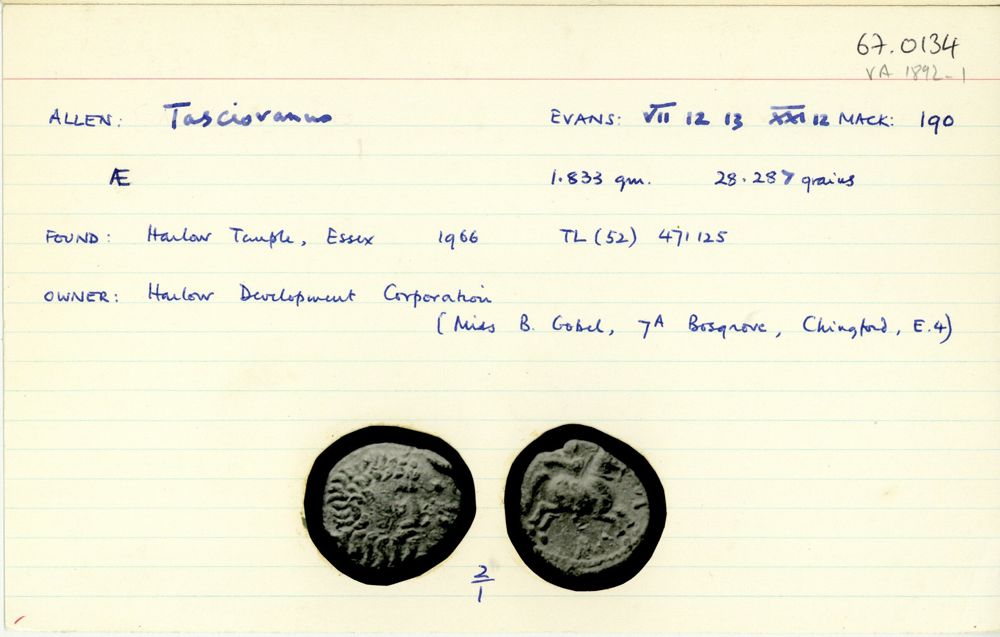 67.0134
VA 1892-1
ALLEN: Tasciovanus EVANS: VII 12 13 XXI 12 MACK: 190
Æ 1.833 gm. 28.287 grains
FOUND: Harlow Temple, Essex 1966 TL (52) 471125
OWNER: Harlow Development Corporation
(Miss B. Gobel, 7A Bosgrove, Chingford, E.4)
2
1